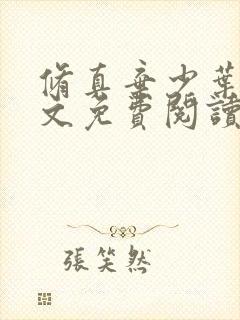 脩真棄少葉
文免費閱讀
張笑然